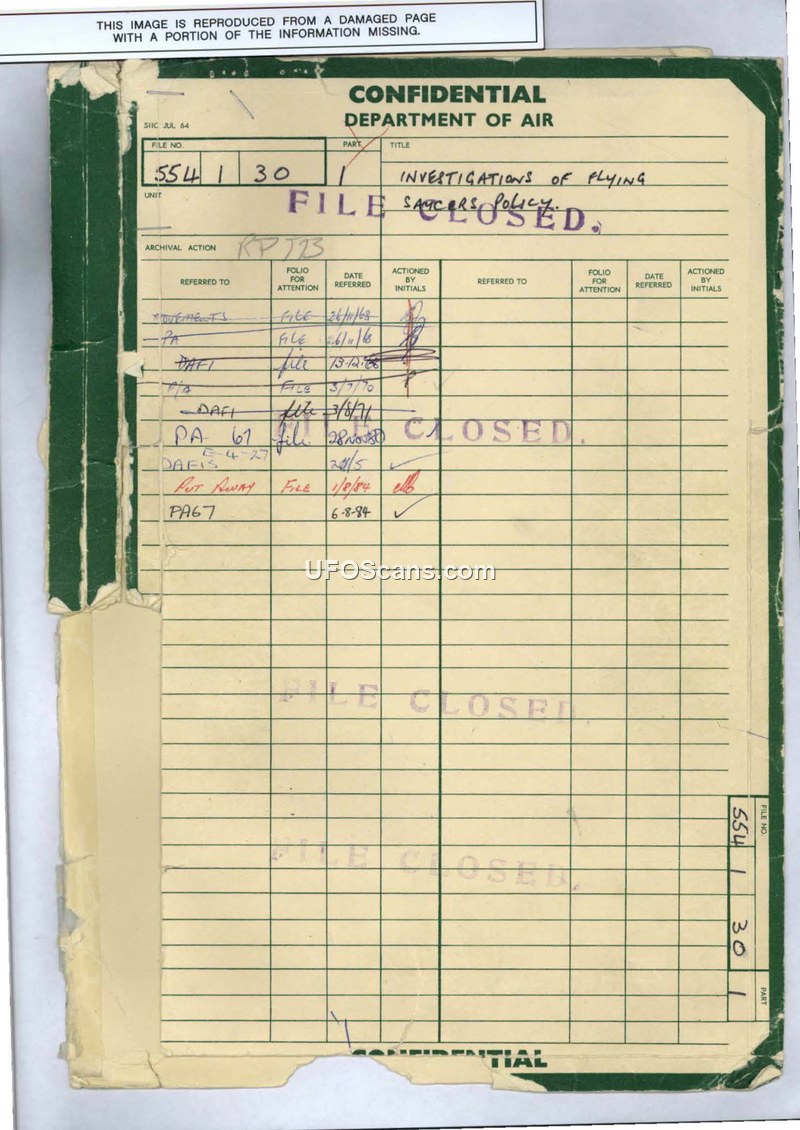 THIS IMAGE IS REPRODUCED FROM A DAMAGED PAGE
WITH A PORTION OF THE INFORMATION MISSING.
CONFIDENTIAL
DEPARTMENT OF AIR
SIIC JUL 64
FILE NO. PART TITLE
554 1 30 1 INVESTIGATIONS OF FLYING
SAUCERS POLICY.
UNIT
FILE CLOSED.
ARCHIVAL ACTION
REFERRED TO FOLIO FOR ATTENTION DATE REFERRED ACTIONED BY INITIALS REFERRED TO FOLIO FOR ATTENTION DATE REFERRED ACTIONED BY INITIALS
MOVEMENTS FILE 26/11/68
PA FILE 26/11/68
DAFI file 13-12-68
P/A FILE 3/7/70
DAFI file 3/8/71
FILE CLOSED.
PA 67 file 28 Nov 80
E-4-27
DAFIS 24/5
PUT AWAY FILE 1/8/84
PA67 6-8-84
UFOScans.com
FILE CLOSED.
FILE CLOSED.
FILE NO. 554 1 30
PART 1
CONFIDENTIAL